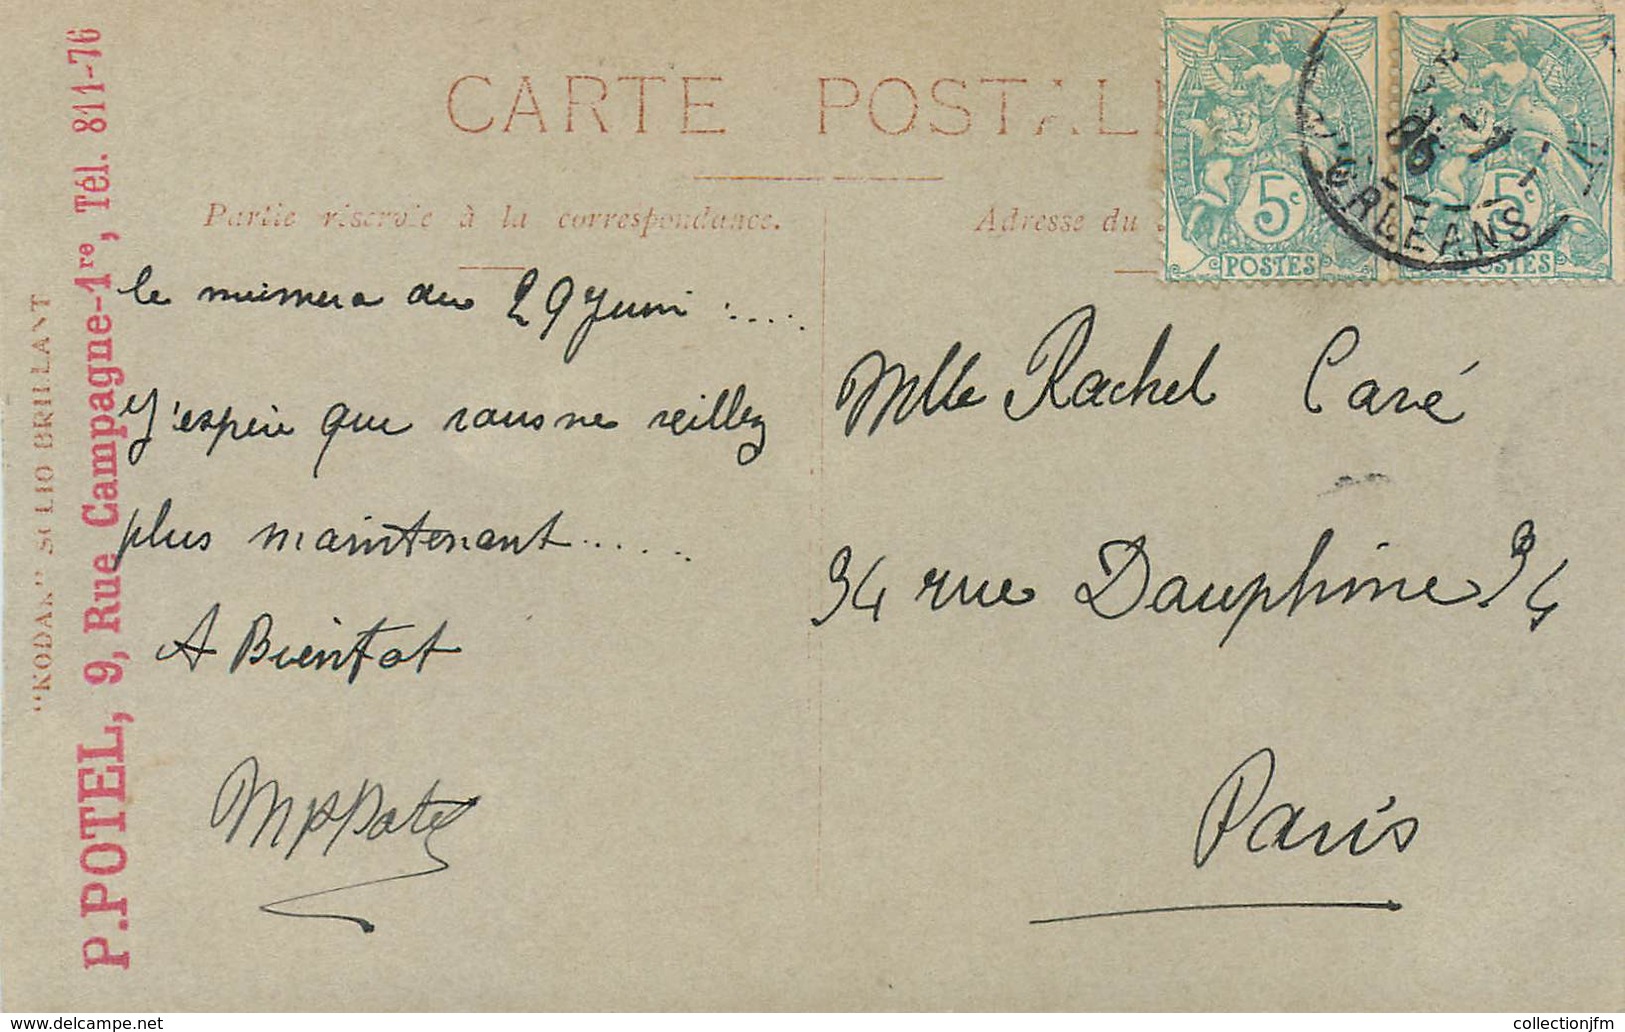 CARTE POSTALE
Partie réservée à la correspondance.
Adresse du
"KODAK" SOLIO BRILLANT
P.POTEL, 9, Rue Campagne-1re, Tél. 811-76
5c 5c
POSTES POSTES
06
D'ORLEANS
le numero du 29 Juin :....
J'espère que vous ne veillez
plus maintenant......
A Bientot
Mlle Rachel Caré
34 rue Dauphine 34
Paris
delcampe.net
collectionjfm